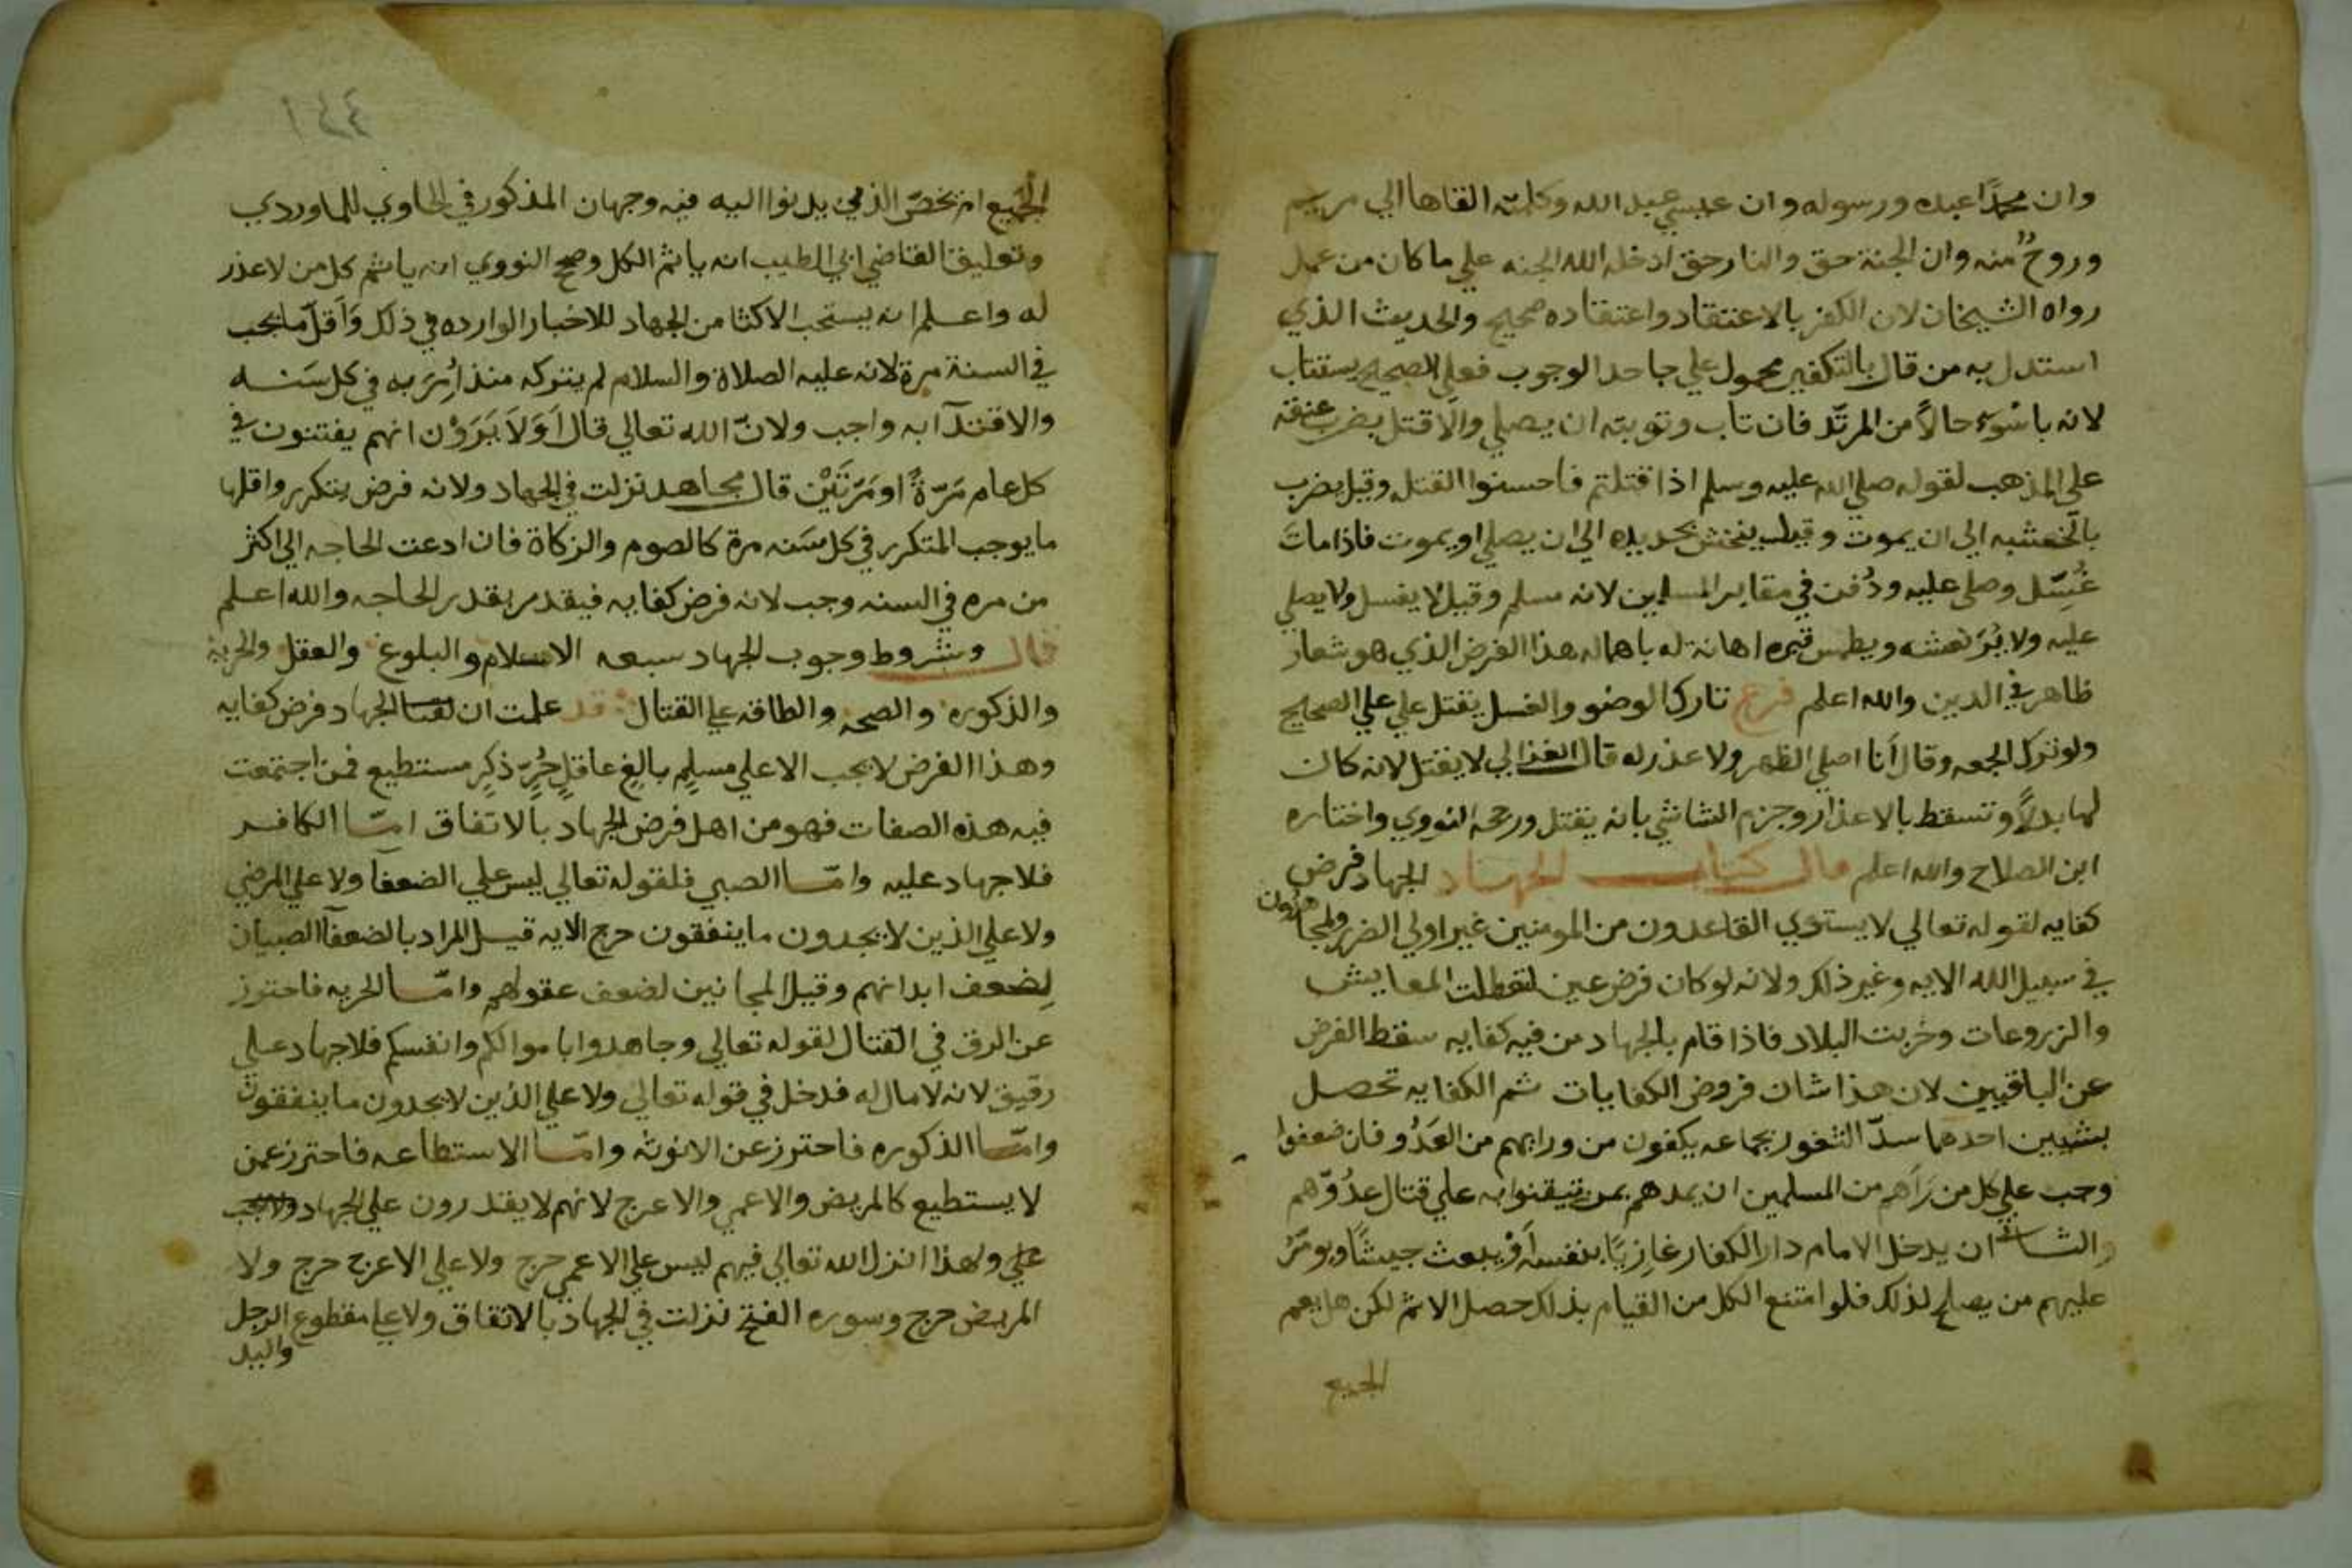 وان محمدًا عبده ورسوله وان عيسي عبد الله وكلمته القاها الي مريم
وروحٌ منه وان الجنة حق والنار حق ادخله الله الجنه علي ما كان من عمل
رواه الشيخان لان الكفر بالاعتقاد واعتقاده صحيح والحديث الذي
استدل به من قال بالتكفير محمول علي جاحد الوجوب فعلي الصحيح يستتاب
لانه باسْوَء حالاً من المرتّد فان تاب وتوبته ان يصلي والا قتل يضرب عنقه
علي المذهب لقوله صلي الله عليه وسلم اذا قتلتم فاحسنوا القتل وقيل يضرب
بالخشبه الى ان يموت وقيل ينخش بحديده الي ان يصلي او يموت فاذا ماتَ
غُسِّل وصلى عليه ودُفن في مقابر المسلمين لانه مسلم وقيل لا يغسل ولا يصلي
عليه ولا يُرَ نعشه ويطمس قبره اهانة له باهماله هذا الفرض الذي هو شعار
ظاهر في الدين والله اعلم فرع تارك الوضو والغسل يقتل علي علي الصحيح
ولو ترك الجمعه وقال أنا اصلي الظهر ولا عذر له قال الغزالي لا يقتل لانه كان
لها بدلاً وتسقط بالاعذار وجزم الشاشي بانه يقتل ورجحه النووي واختاره
ابن الصلاح والله اعلم قال كتاب الجهاد الجهاد فرض
كفايه لقوله تعالي لا يستوي القاعدون من المومنين غير اولي الضرر والمجاهدون
في سبيل الله الايه وغير ذلك ولانه لو كان فرض عين لتعطلت المعايش
والزروعات وخربت البلاد فاذا قام بالجهاد من فيه كفايه سقط الفرض
عن الباقيين لان هذا شان فروض الكفايات ثم الكفايه تحصل
بشيين احدهما سدّ الثغور بجماعه يكفون من ورايهم من العَدُو فان ضعفوا
وجب علي كل من رَآهم من المسلمين ان يمدهم بمن يتيقنوا به علي قتال عدُوّهم
والثاني ان يدخل الامام دار الكفار غازيًا بنفسه أوْ يبعث جيشًا ويومّرُ
عليهم من يصلح لذلك فلو امتنع الكل من القيام بذلك حصل الاثم لكن هل يعم
الجميع
١٤٤
الجَميع ام يختصّ الذي يدنوا اليه فيه وجهان المذكور في الحاوي للماوردي
وتعليق القاضي ابي الطيب انه ياثم الكل وصحح النووي انه ياثم كل من لا عذر
له واعلم انه يستحب الاكثا من الجهاد للاخبار الوارده في ذلك وَأقلّ ما يجب
في السنة مرة لانه عليه الصلاة والسلام لم يتركه منذ أُمِرَ به في كل سَنه
والاقتدآ به واجب ولانّ الله تعالي قال أَوَلاَ يَرَوْن انهم يفتنون في
كل عام مَرّةً او مَرّتَيْن قال مجاهد نزلت في الجهاد ولانه فرض يتكرر واقلها
ما يوجب المتكرر في كل سَنه مرة كالصوم والزكاة فان ادعت الحاجه الي اكثر
من مره في السنه وجب لانه فرض كفايه فيقدر بقدر الحاجه والله اعلم
قال وشروط وجوب الجهاد سبعه الاسلام والبلوغ والعقل والحريه
والذكوره والصحه والطاقه علي القتال قد علمت ان الجهاد فرض كفايه
وهذا الفرض لا يجب الا علي مسلمٍ بالغٍ عاقلٍ حُرٍّ ذكرٍ مستطيع فمن اجتمعت
فيه هذه الصفات فهو من اهل فرض الجهاد بالاتفاق امّا الكافر
فلا جهاد عليه وامّا الصبي فلقوله تعالي ليس علي الضعفا ولا علي المرضي
ولا علي الذين لا يجدون ما ينفقون حرج الايه قيل المراد بالضعفآ الصبيان
لضعف ابدانهم وقيل المجانين لضعف عقولهم وامّا الحريه فاحترز
عن الرق في القتال لقوله تعالي وجاهدوا باموالكم وانفسكم فلا جهاد علي
رقيق لانه لا مال له فدخل في قوله تعالي ولا علي الذين لا يجدون ما ينفقون
وامّا الذكوره فاحترز عن الانوثه وامّا الاستطاعه فاحترز عمن
لا يستطيع كالمريض والاعمي والاعرج لانهم لا يقدرون علي الجهاد ولا يجب
علي ولهذا انزل الله تعالي فيهم ليس علي الاعمي حرج ولا علي الاعرج حرج ولا
المريض حرج وسوره الفتح نزلت في الجهاد بالاتفاق ولا علي مقطوع الرجل
واليد